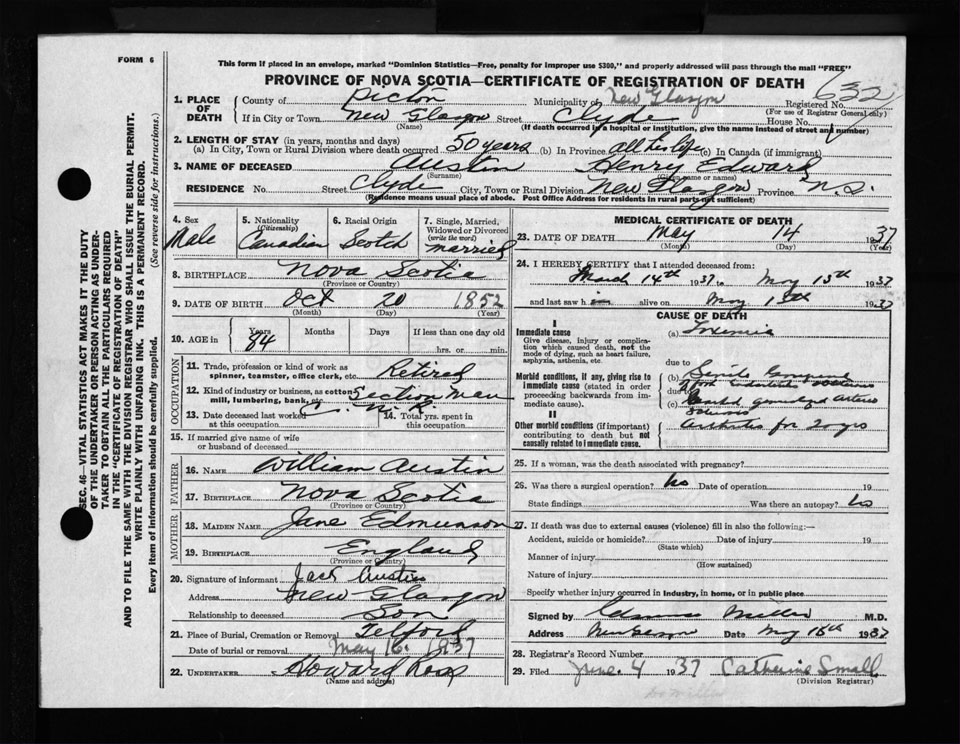 FORM 6
This form if placed in an envelope, marked "Dominion Statistics—Free, penalty for improper use $300," and properly addressed will pass through the mail "FREE"
PROVINCE OF NOVA SCOTIA—CERTIFICATE OF REGISTRATION OF DEATH
632
1. PLACE OF DEATH County of Pictou Municipality of New Glasgow Registered No.
(For use of Registrar General only)
If in City or Town New Glasgow Street Clyde House No.
(Name) (If death occurred in a hospital or institution, give the name instead of street and number)
2. LENGTH OF STAY (in years, months and days)
(a) In City, Town or Rural Division where death occurred 50 years (b) In Province all his life (c) In Canada (if immigrant)
3. NAME OF DECEASED Austin Henry Edward
(Surname) (Given name or names)
RESIDENCE No. Street Clyde City, Town or Rural Division New Glasgow Province N.S.
(Residence means usual place of abode. Post Office Address for residents in rural parts not sufficient)
4. Sex Male
5. Nationality (Citizenship) Canadian
6. Racial Origin Scotch
7. Single, Married, Widowed or Divorced (write the word) Married
8. BIRTHPLACE Nova Scotia
(Province or Country)
9. DATE OF BIRTH Oct 20 1852
(Month) (Day) (Year)
10. AGE in Years 84 Months Days If less than one day old
hrs. or min.
OCCUPATION
11. Trade, profession or kind of work as spinner, teamster, office clerk, etc. Retired
12. Kind of industry or business, as cotton mill, lumbering, bank, etc. Section man
13. Date deceased last worked at this occupation
14. Total yrs. spent in this occupation
15. If married give name of wife or husband of deceased
FATHER
16. NAME William Austin
17. BIRTHPLACE Nova Scotia
(Province or Country)
MOTHER
18. MAIDEN NAME Jane Edmunson
19. BIRTHPLACE England
(Province or Country)
20. Signature of informant Jack Austin
Address New Glasgow
Relationship to deceased Son
21. Place of Burial, Cremation or Removal Telford
Date of burial or removal May 16. 1937
22. UNDERTAKER Howard Ross
(Name and address)
MEDICAL CERTIFICATE OF DEATH
23. DATE OF DEATH May 14 1937
(Month) (Day) (Year)
24. I HEREBY CERTIFY that I attended deceased from:
March 14th 1937 to May 13th 1937
and last saw h im alive on May 13th 1937
CAUSE OF DEATH
I
Immediate cause
Give disease, injury or complication which caused death, not the mode of dying, such as heart failure, asphyxia, asthenia, etc.
(a) Toxemia
due to
Morbid conditions, if any, giving rise to immediate cause (stated in order proceeding backwards from immediate cause).
(b) Senile Gangrene
due to
(c)
II
Other morbid conditions (if important) contributing to death but not causally related to immediate cause.
Arthritis for 20 yrs
25. If a woman, was the death associated with pregnancy?
26. Was there a surgical operation? No Date of operation 19
State findings Was there an autopsy? No
27. If death was due to external causes (violence) fill in also the following:—
Accident, suicide or homicide? Date of injury 19
(State which)
Manner of injury
(How sustained)
Nature of injury
Specify whether injury occurred in industry, in home, or in public place
Signed by Miller M.D.
Address New Glasgow Date May 16th 1937
28. Registrar's Record Number
29. Filed June. 4 1937 Catherine Small
(Division Registrar)
SEC. 46—VITAL STATISTICS ACT MAKES IT THE DUTY
OF THE UNDERTAKER OR PERSON ACTING AS UNDER-
TAKER TO OBTAIN ALL THE PARTICULARS REQUIRED
IN THE "CERTIFICATE OF REGISTRATION OF DEATH"
AND TO FILE THE SAME WITH THE DIVISION REGISTRAR WHO SHALL ISSUE THE BURIAL PERMIT.
WRITE PLAINLY WITH UNFADING INK. THIS IS A PERMANENT RECORD.
Every item of Information should be carefully supplied. (See reverse side for instructions.)